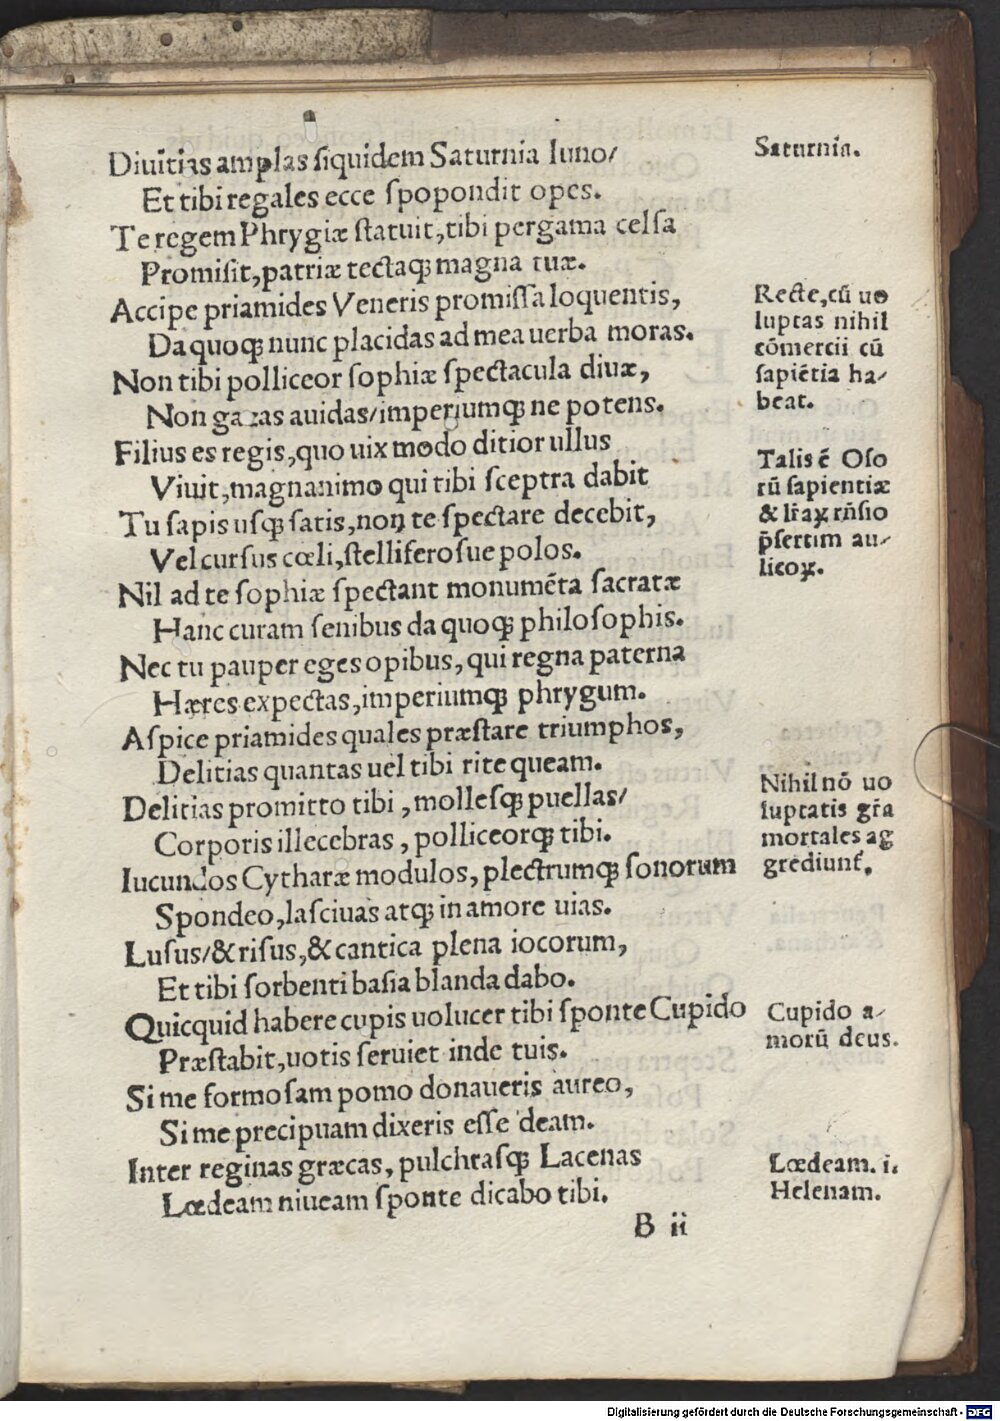 Diuitias amplas ſiquidem Saturnia Iuno/
Et tibi regales ecce ſpopondit opes.
Te regem Phrygiæ ſtatuit, tibi pergama celſa
Promiſit, patriæ tectaqꝫ magna tuæ.
Accipe priamides Veneris promiſſa loquentis,
Da quoqꝫ nunc placidas ad mea uerba moras.
Non tibi polliceor ſophiæ ſpectacula diuæ,
Non gazas auidas/imperiumqꝫ ne potens.
Filius es regis, quo uix modo ditior ullus
Viuit, magnanimo qui tibi ſceptra dabit
Tu ſapis uſqꝫ ſatis, non te ſpectare decebit,
Vel curſus cœli, ſtelliferoſue polos.
Nil ad te ſophiæ ſpectant monumēta ſacratæ
Hanc curam ſenibus da quoqꝫ philoſophis.
Nec tu pauper eges opibus, qui regna paterna
Hæres expectas, imperiumqꝫ phrygum.
Aſpice priamides quales præſtare triumphos,
Delitias quantas uel tibi rite queam.
Delitias promitto tibi, molleſqꝫ puellas/
Corporis illecebras, polliceorqꝫ tibi.
Iucundos Cytharæ modulos, plectrumqꝫ ſonorum
Spondeo, laſciuas atqꝫ in amore uias.
Luſus/& riſus, & cantica plena iocorum,
Et tibi ſorbenti baſia blanda dabo.
Quicquid habere cupis uolucer tibi ſponte Cupido
Præſtabit, uotis ſeruiet inde tuis.
Si me formoſam pomo donaueris aureo,
Si me precipuam dixeris eſſe deam.
Inter reginas græcas, pulchraſqꝫ Lacenas
Lœdeam niueam ſponte dicabo tibi.
B ii
Saturnia.
Recte, cū uo
luptas nihil
cōmercii cū
ſapiētia ha/
beat.
Talis ē Oſo
rū ſapientiæ
& lr̄aꝝ rn̄ſio
p̄ſertim au/
licoꝝ.
Nihil nō uo
luptatis gr̄a
mortales ag
grediunt̄.
Cupido a/
morū deus.
Lœdeam. i.
Helenam.
Digitalisierung gefördert durch die Deutsche Forschungsgemeinschaft - DFG